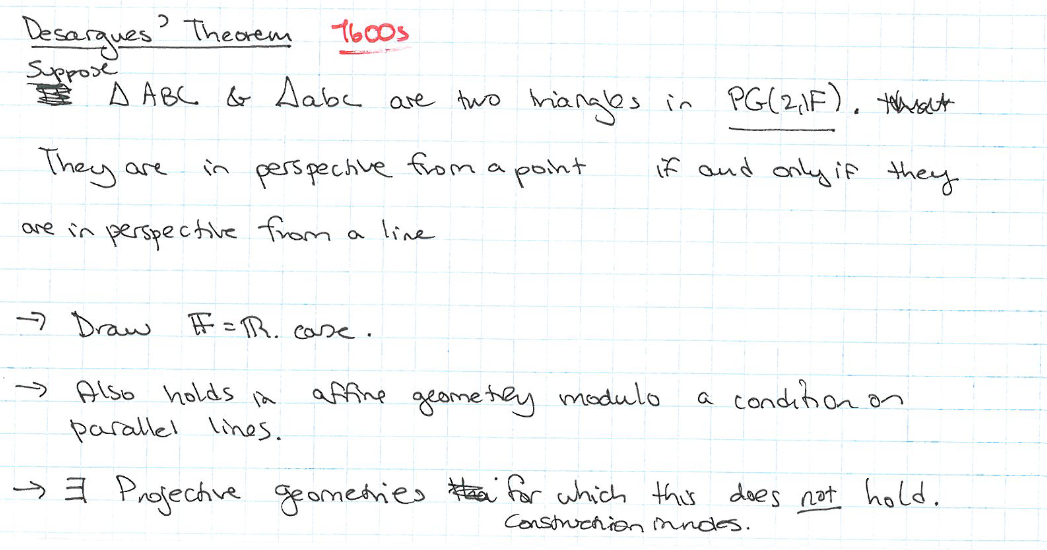 Desargues' Theorem 1600s
Suppose
△ ABC & △abc are two triangles in PG(2,𝔽).
They are in perspective from a point if and only if they
are in perspective from a line
→ Draw 𝔽 = ℝ. case.
→ Also holds in affine geometry modulo a condition on
parallel lines.
→ ∃ Projective geometries for which this does not hold.
Construction in notes.